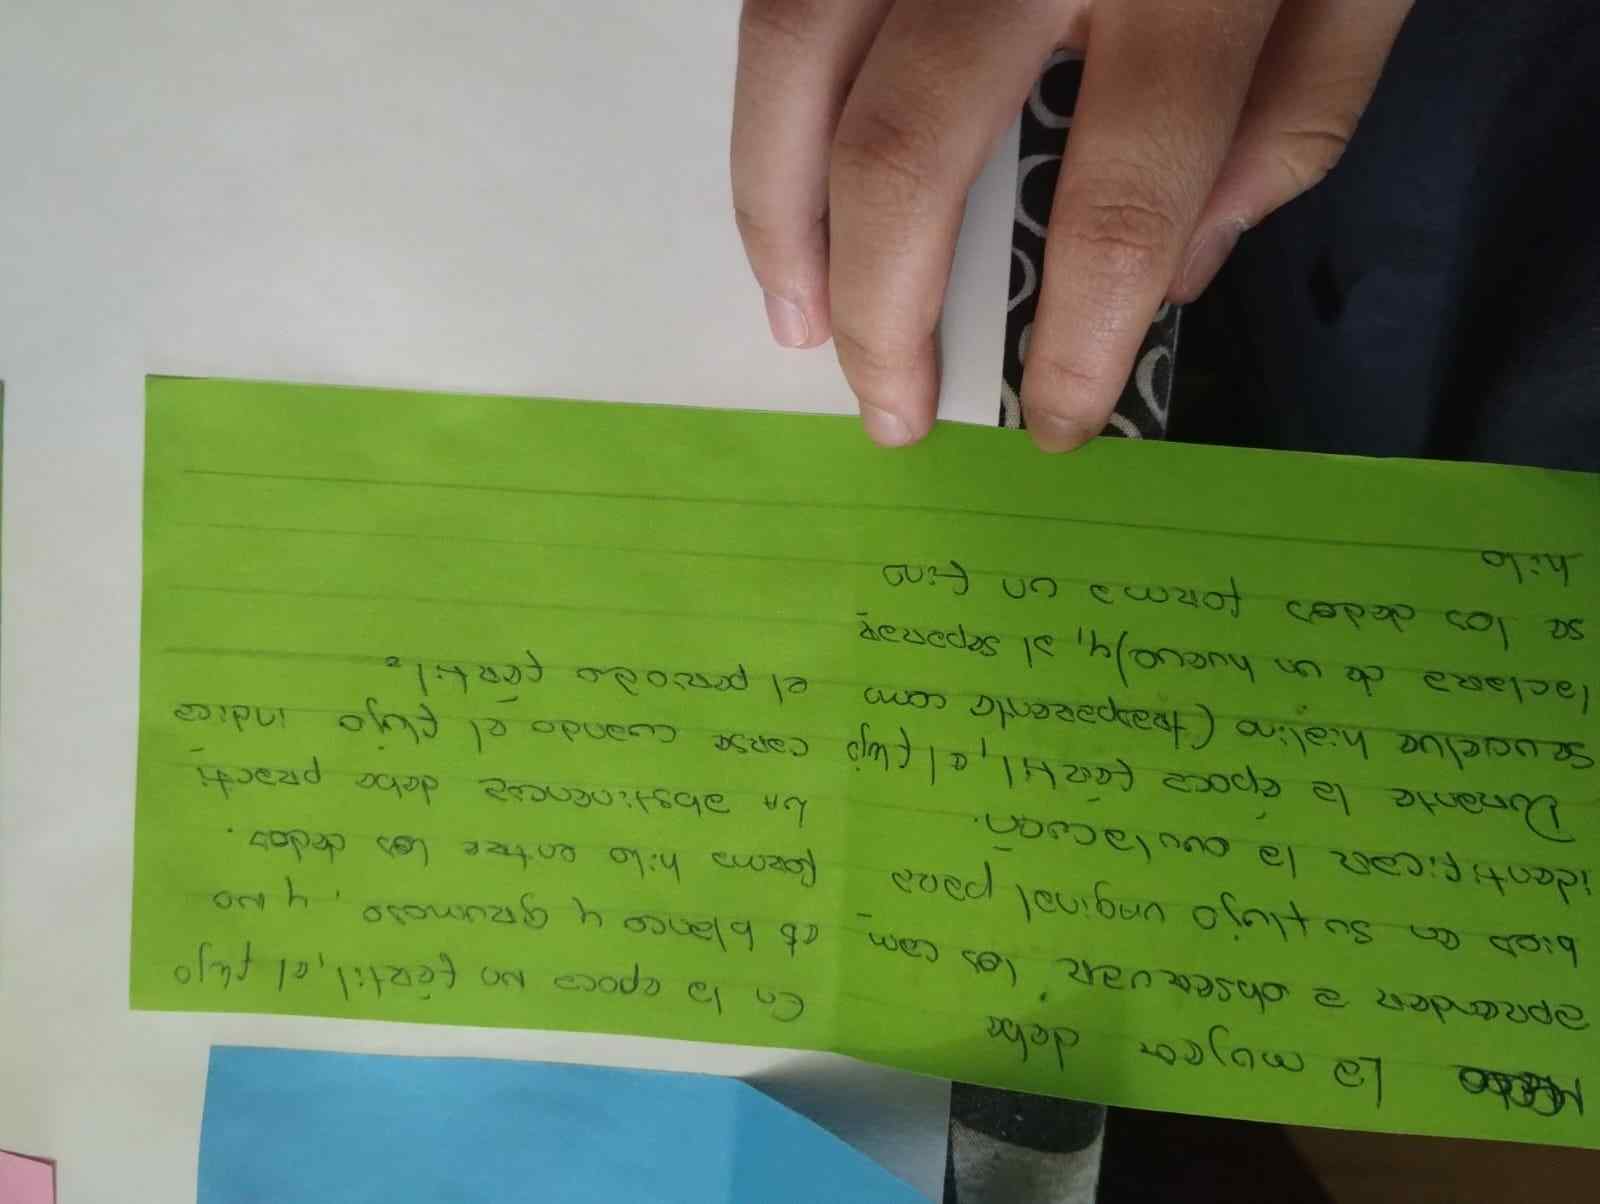 La mujer debe
aprender a observar los cam-
bios en su flujo vaginal para
identificar la ovulación.
Durante la época fértil, el flujo
se vuelve hialino (trasparente com
laclara de un huevo) y, al separar
se los dedos forma un fino
hilo
En la epoca no fértil, el flujo
es blanco y grumoso, y no
forma hilo entre los dedos.
La abstinencia debe practi
carse cuando el flujo indica
el periodo fértil